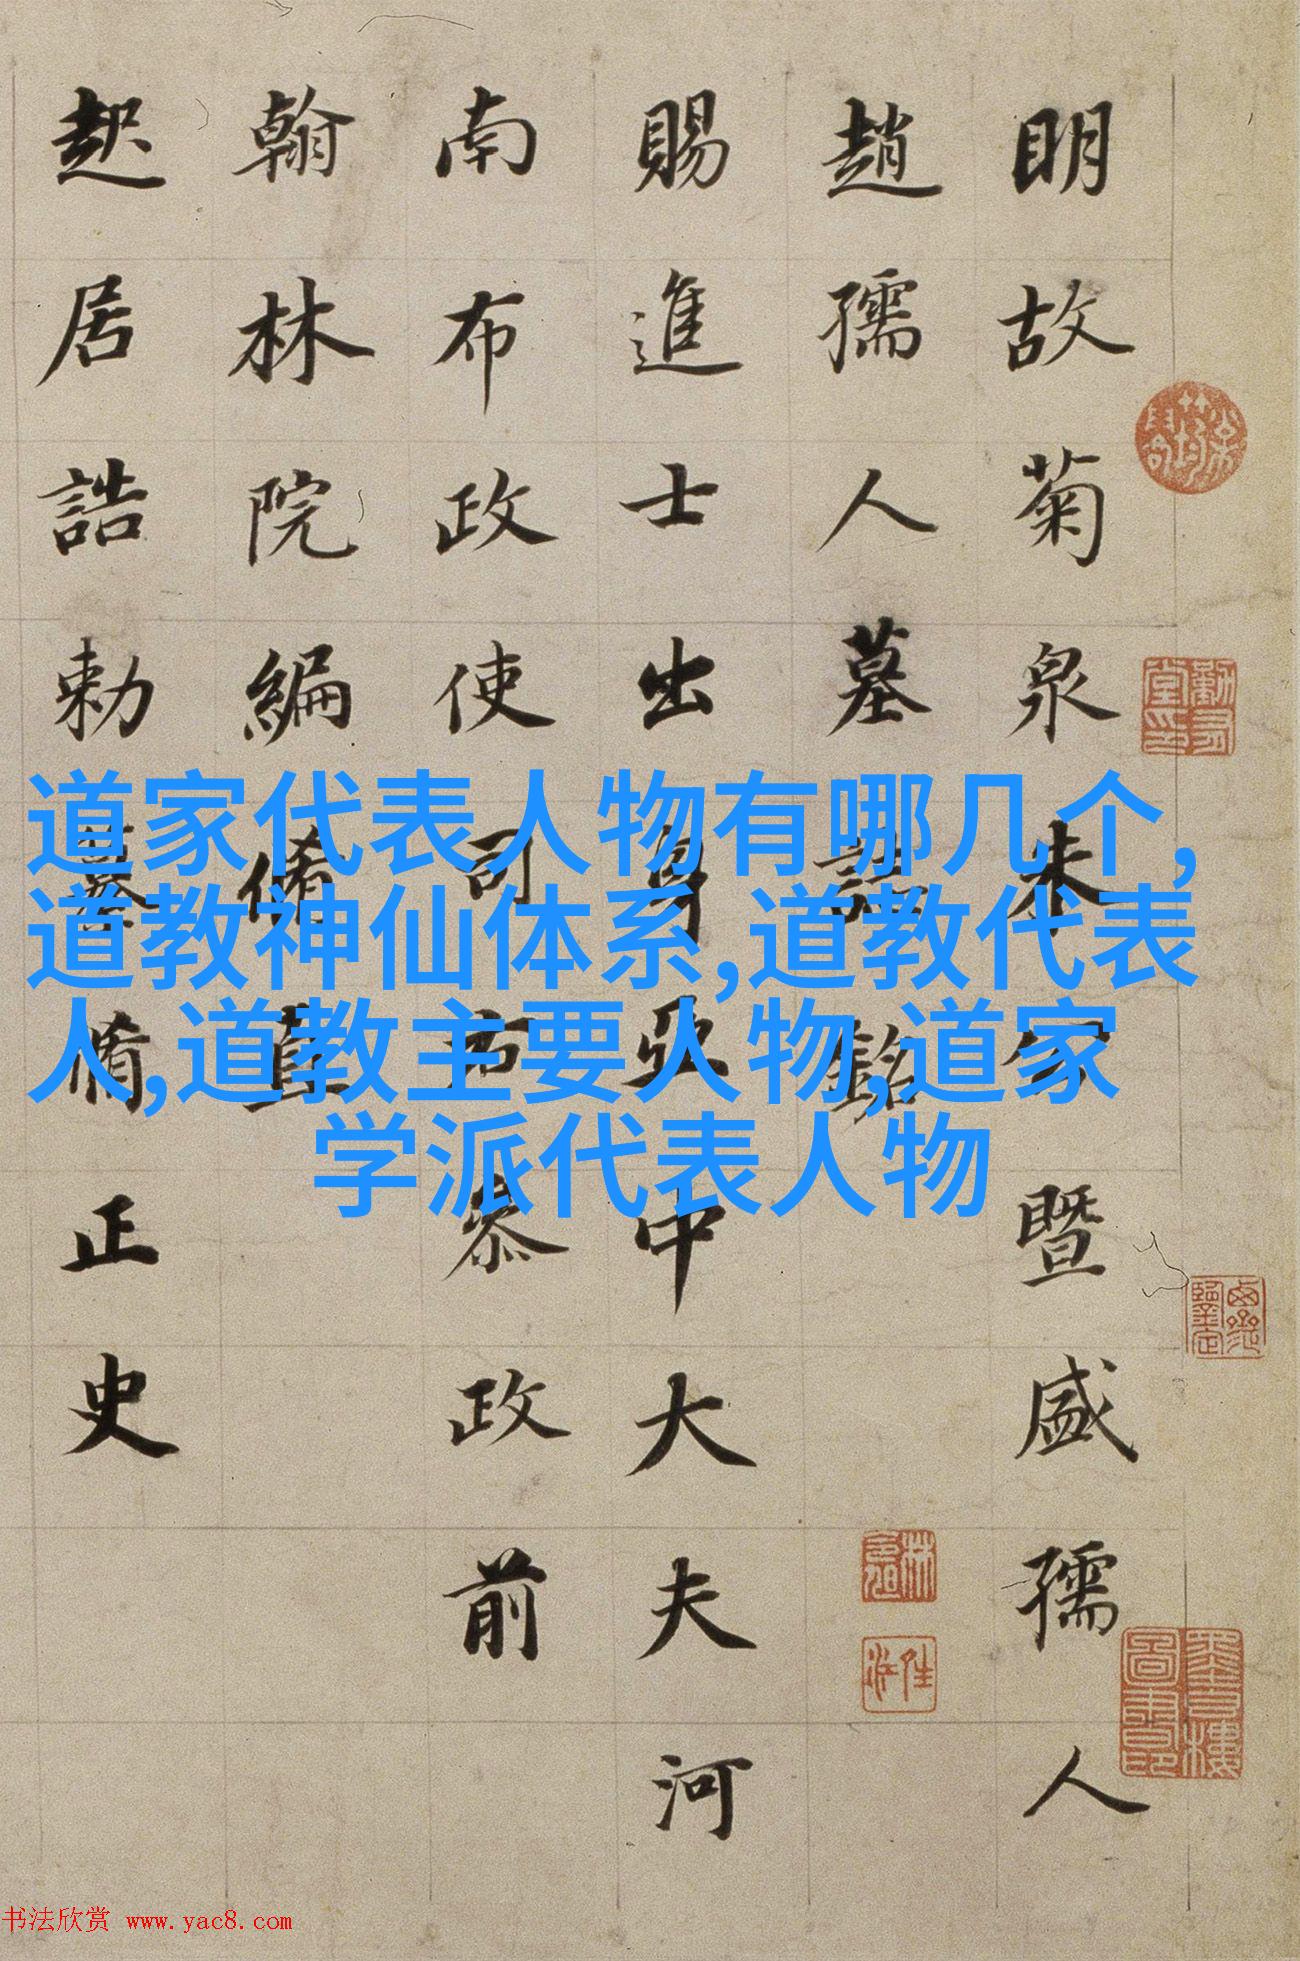 明故菊泉朱公暨盛孺人
趙孺人墓誌銘
賜進士出身亞中大夫河
南布政使司左叅政前
翰林院編脩直
起居誥勅纂脩正史
道家代表人物有哪几个,
道教神仙体系,道教代表
人,道教主要人物,道家
学派代表人物
书法欣赏 www.yac8.com